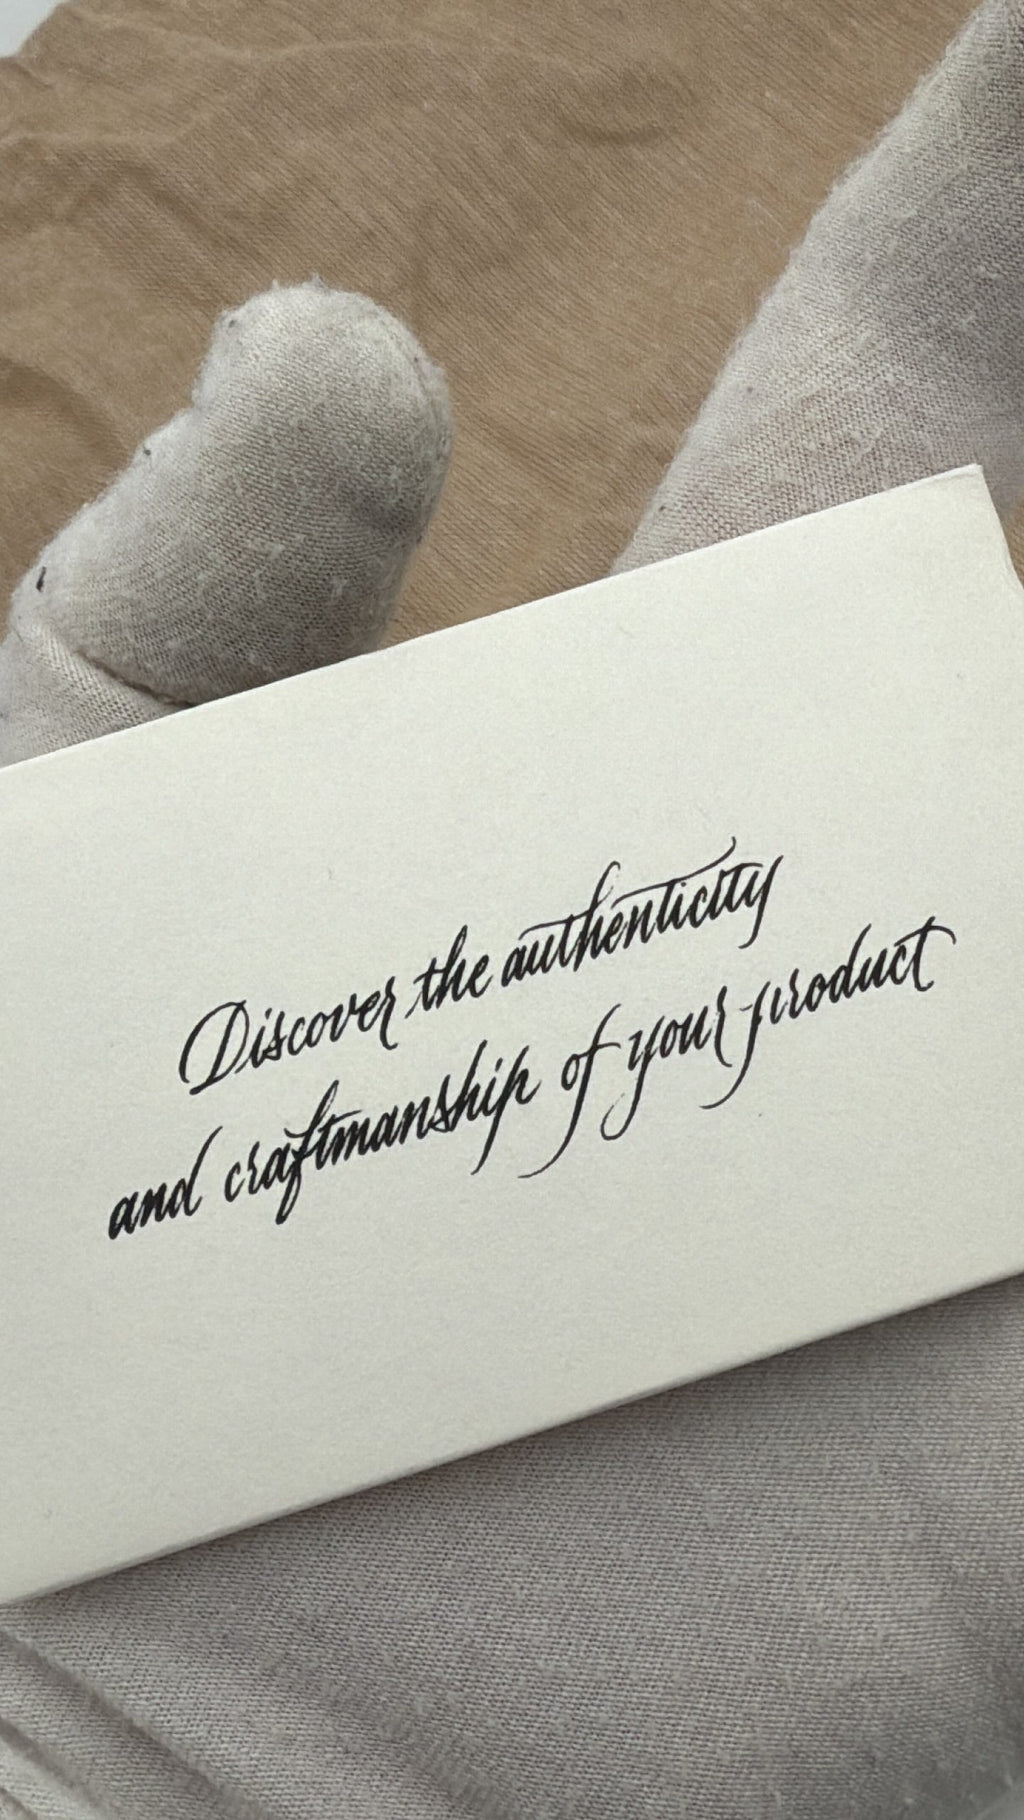 Discover the authenticity
and craftmanship of your product